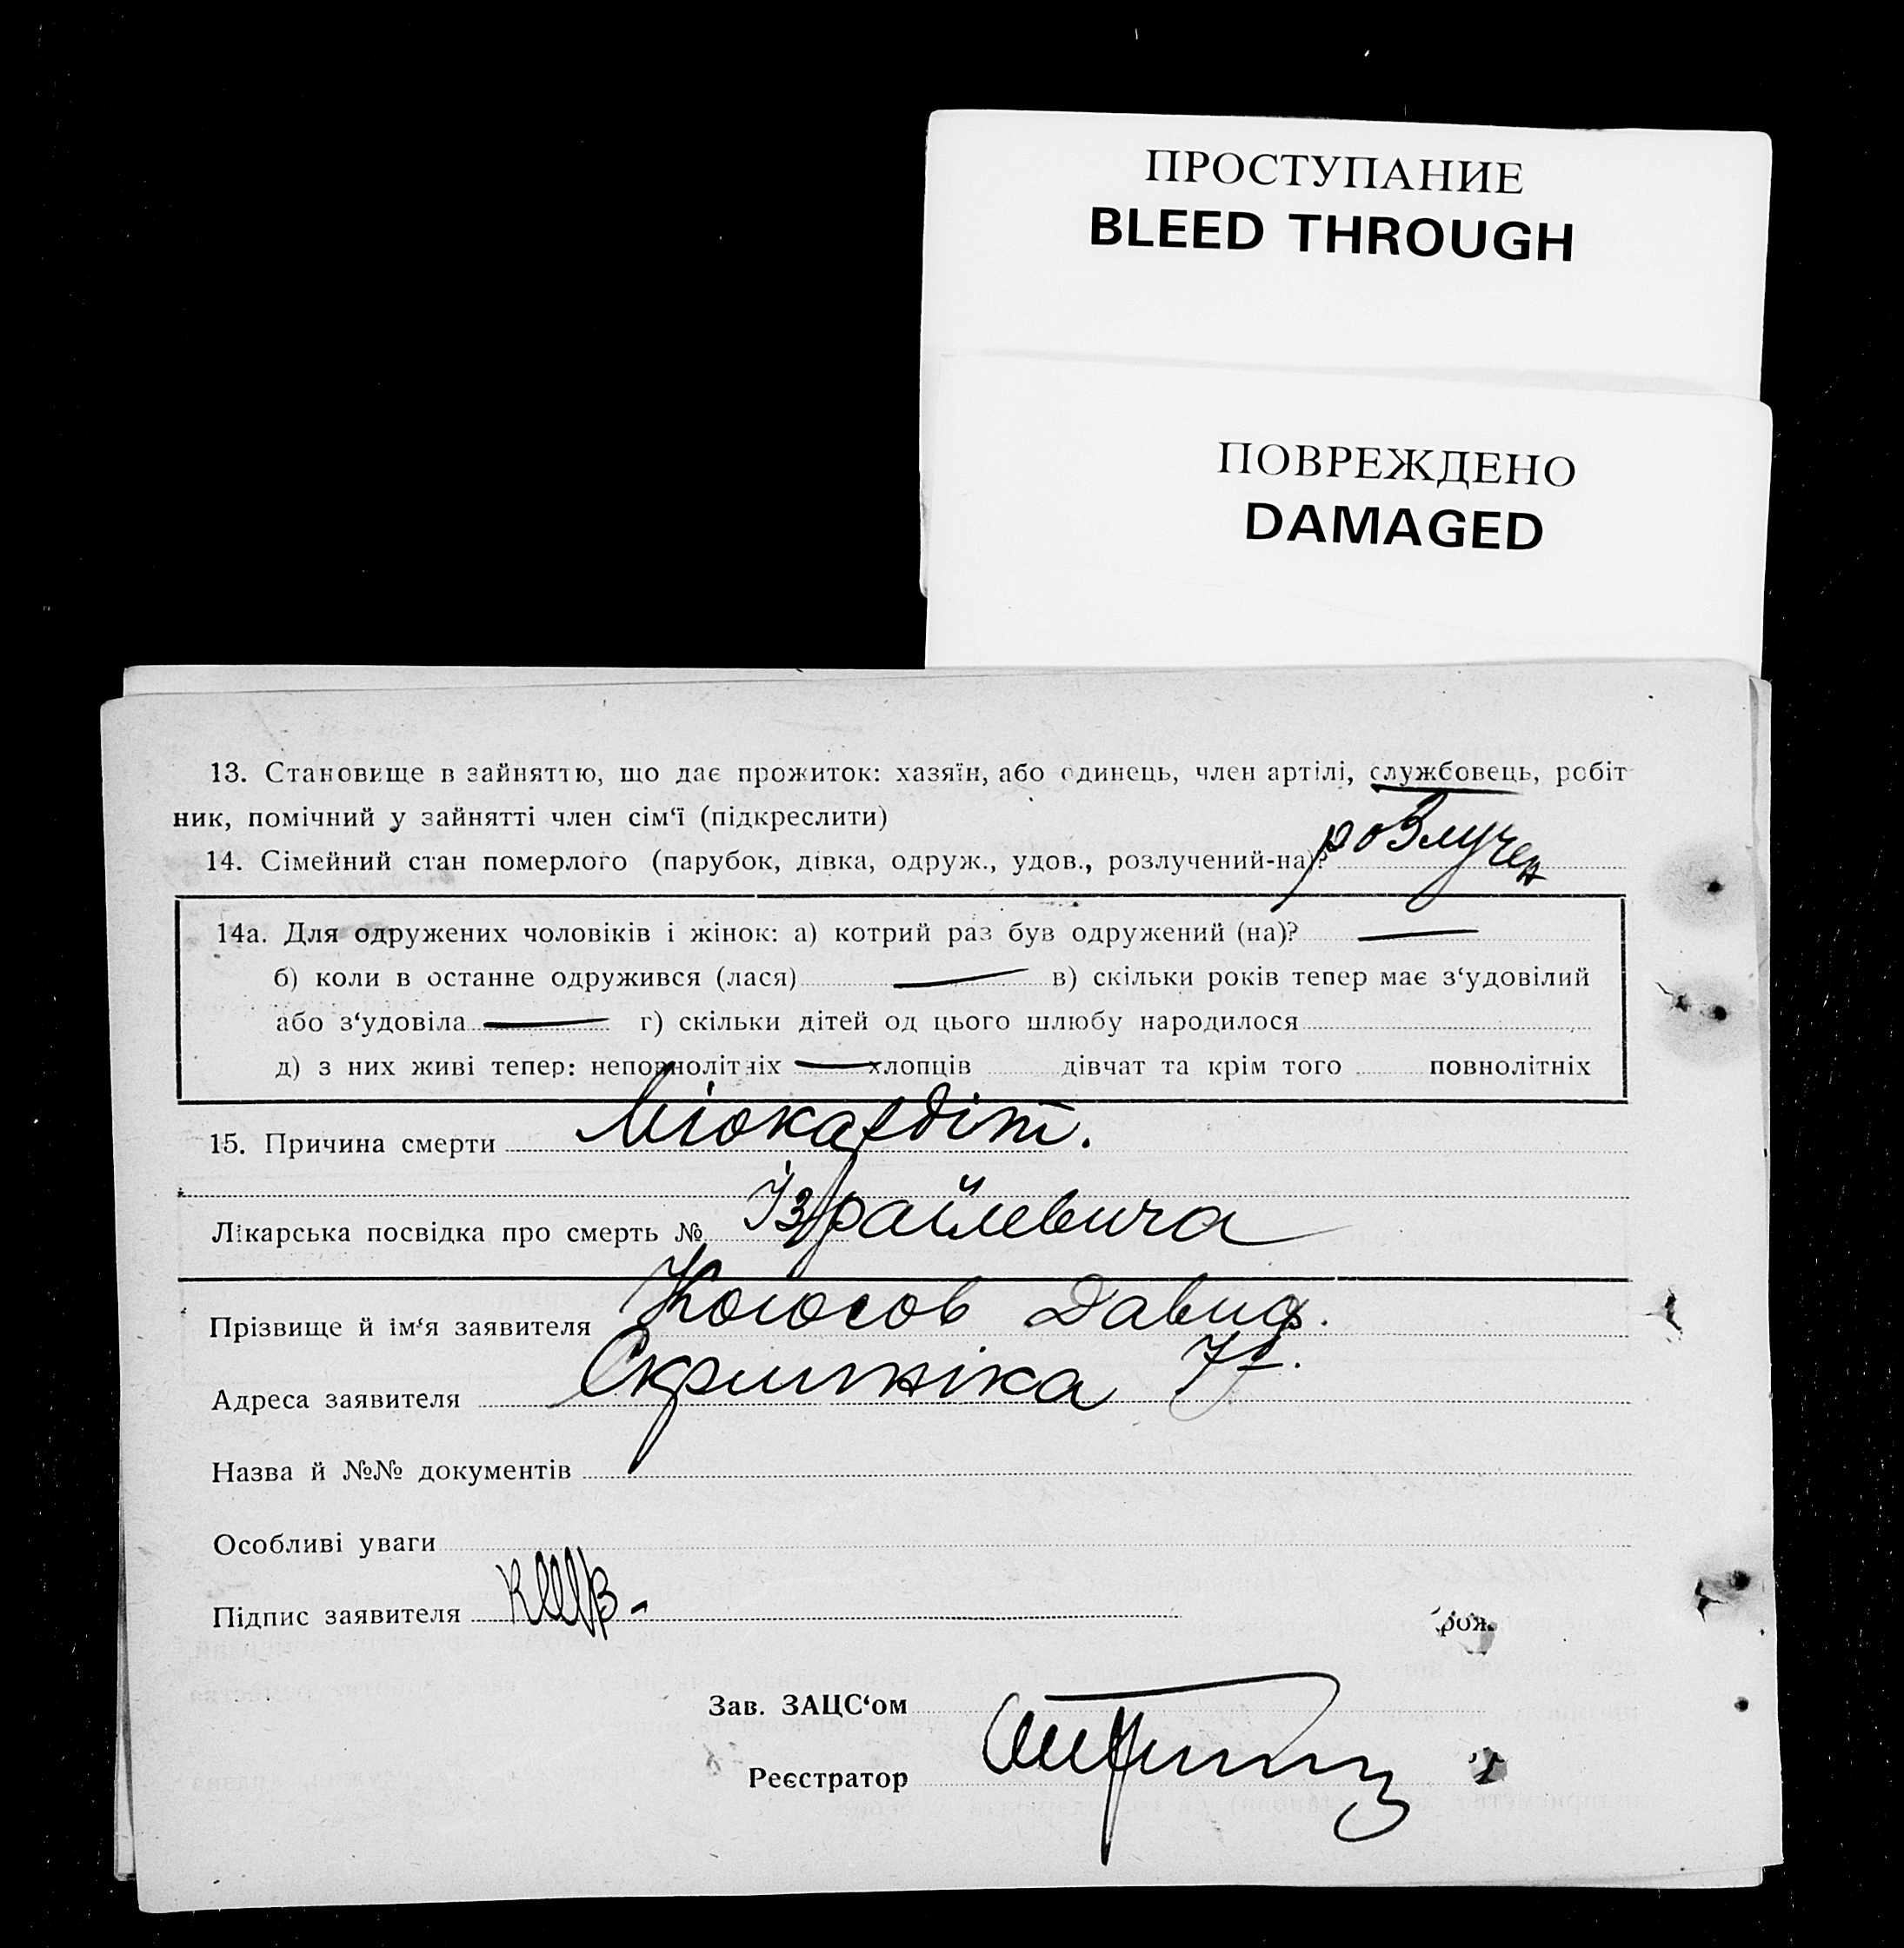 ПРОСТУПАНИЕ
BLEED THROUGH
ПОВРЕЖДЕНО
DAMAGED
13. Становище в зайняттю, що дає прожиток: хазяїн, або одинець, член артілі, службовець, робіт-
ник, помічний у зайнятті член сім'ї (підкреслити)
14. Сімейний стан померлого (парубок, дівка, одруж., удов., розлучений-на)? розлучен
14а. Для одружених чоловіків і жінок: а) котрий раз був одружений (на)? —
б) коли в останне одружився (лася) — в) скільки років тепер має з'удовілий
або з'удовіла — г) скільки дітей од цього шлюбу народилося
д) з них живі тепер: неповнолітніх — хлопців дівчат та крім того повнолітніх
15. Причина смерти Міокардіт.
Лікарська посвідка про смерть № Ізраїлевича
Прізвище й ім'я заявителя Давид.
Адреса заявителя Скрипніка
Назва й №№ документів
Особливі уваги
Підпис заявителя
Зав. ЗАЦС'ом
Реєстратор